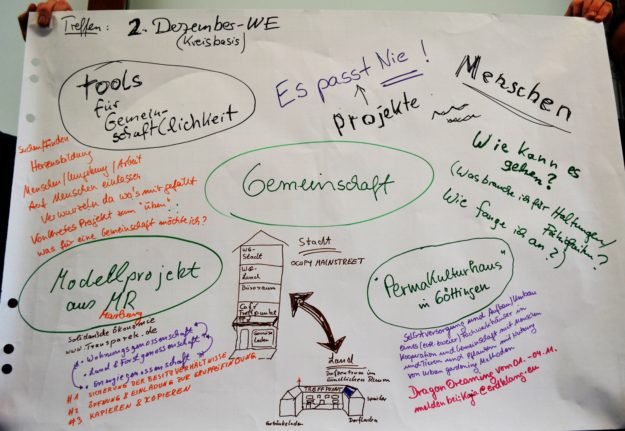 Treffen: 2. Dezember-WE
(Kreisbasis)
tools
für
Gemein-
schaft(lichkeit
Es passt Nie!
projekte
Menschen
Suchen/Finden
Herzensbildung
Menschen/Umgebung/Arbeit
Auf Menschen einlassen
Verwurzeln da wo's mir gefällt
Konkretes Projekt zum "üben"
was für eine Gemeinschaft möchte ich?
Gemeinschaft
Wie kann es
gehen?
(Was brauche ich für Haltungen/
Fähigkeiten?
Wie fange ich an?)
Modellprojekt
aus MR
Marburg
Solidarische Ökonomie
www.Transparek.de
Wohnungsgenossenschaft
Land & Forstgenossenschaft
Energiegenossenschaft
#1 SICHERUNG DER BESITZVERHÄLTNISSE
#2 ÖFFNUNG & EINLADUNG ZUR GRUPPENFINDUNG
#3 KAPIEREN & KOPIEREN
Stadt
OCUPY MAINSTREET
WG-
Stadt
WG-
Land
Büroraum
Café
Treffpunkt
Laden
Land
Dorfzentrum im
ländlichen Raum
TREFFPUNKT
Dorfladen
"Permakulturhaus"
in Göttingen
Selbstversorgung und Aufbau/Umbau
eines (evtl. bunter) Fachwerkhäuser in
Kooperation und Gemeinschaft mit Menschen
und Tieren und Pflanzen und Nutzung
von Urban gardening Methoden
Dragon Dreaming vom 01.-04.11.
melden bei: Kaja@erdklang.eu